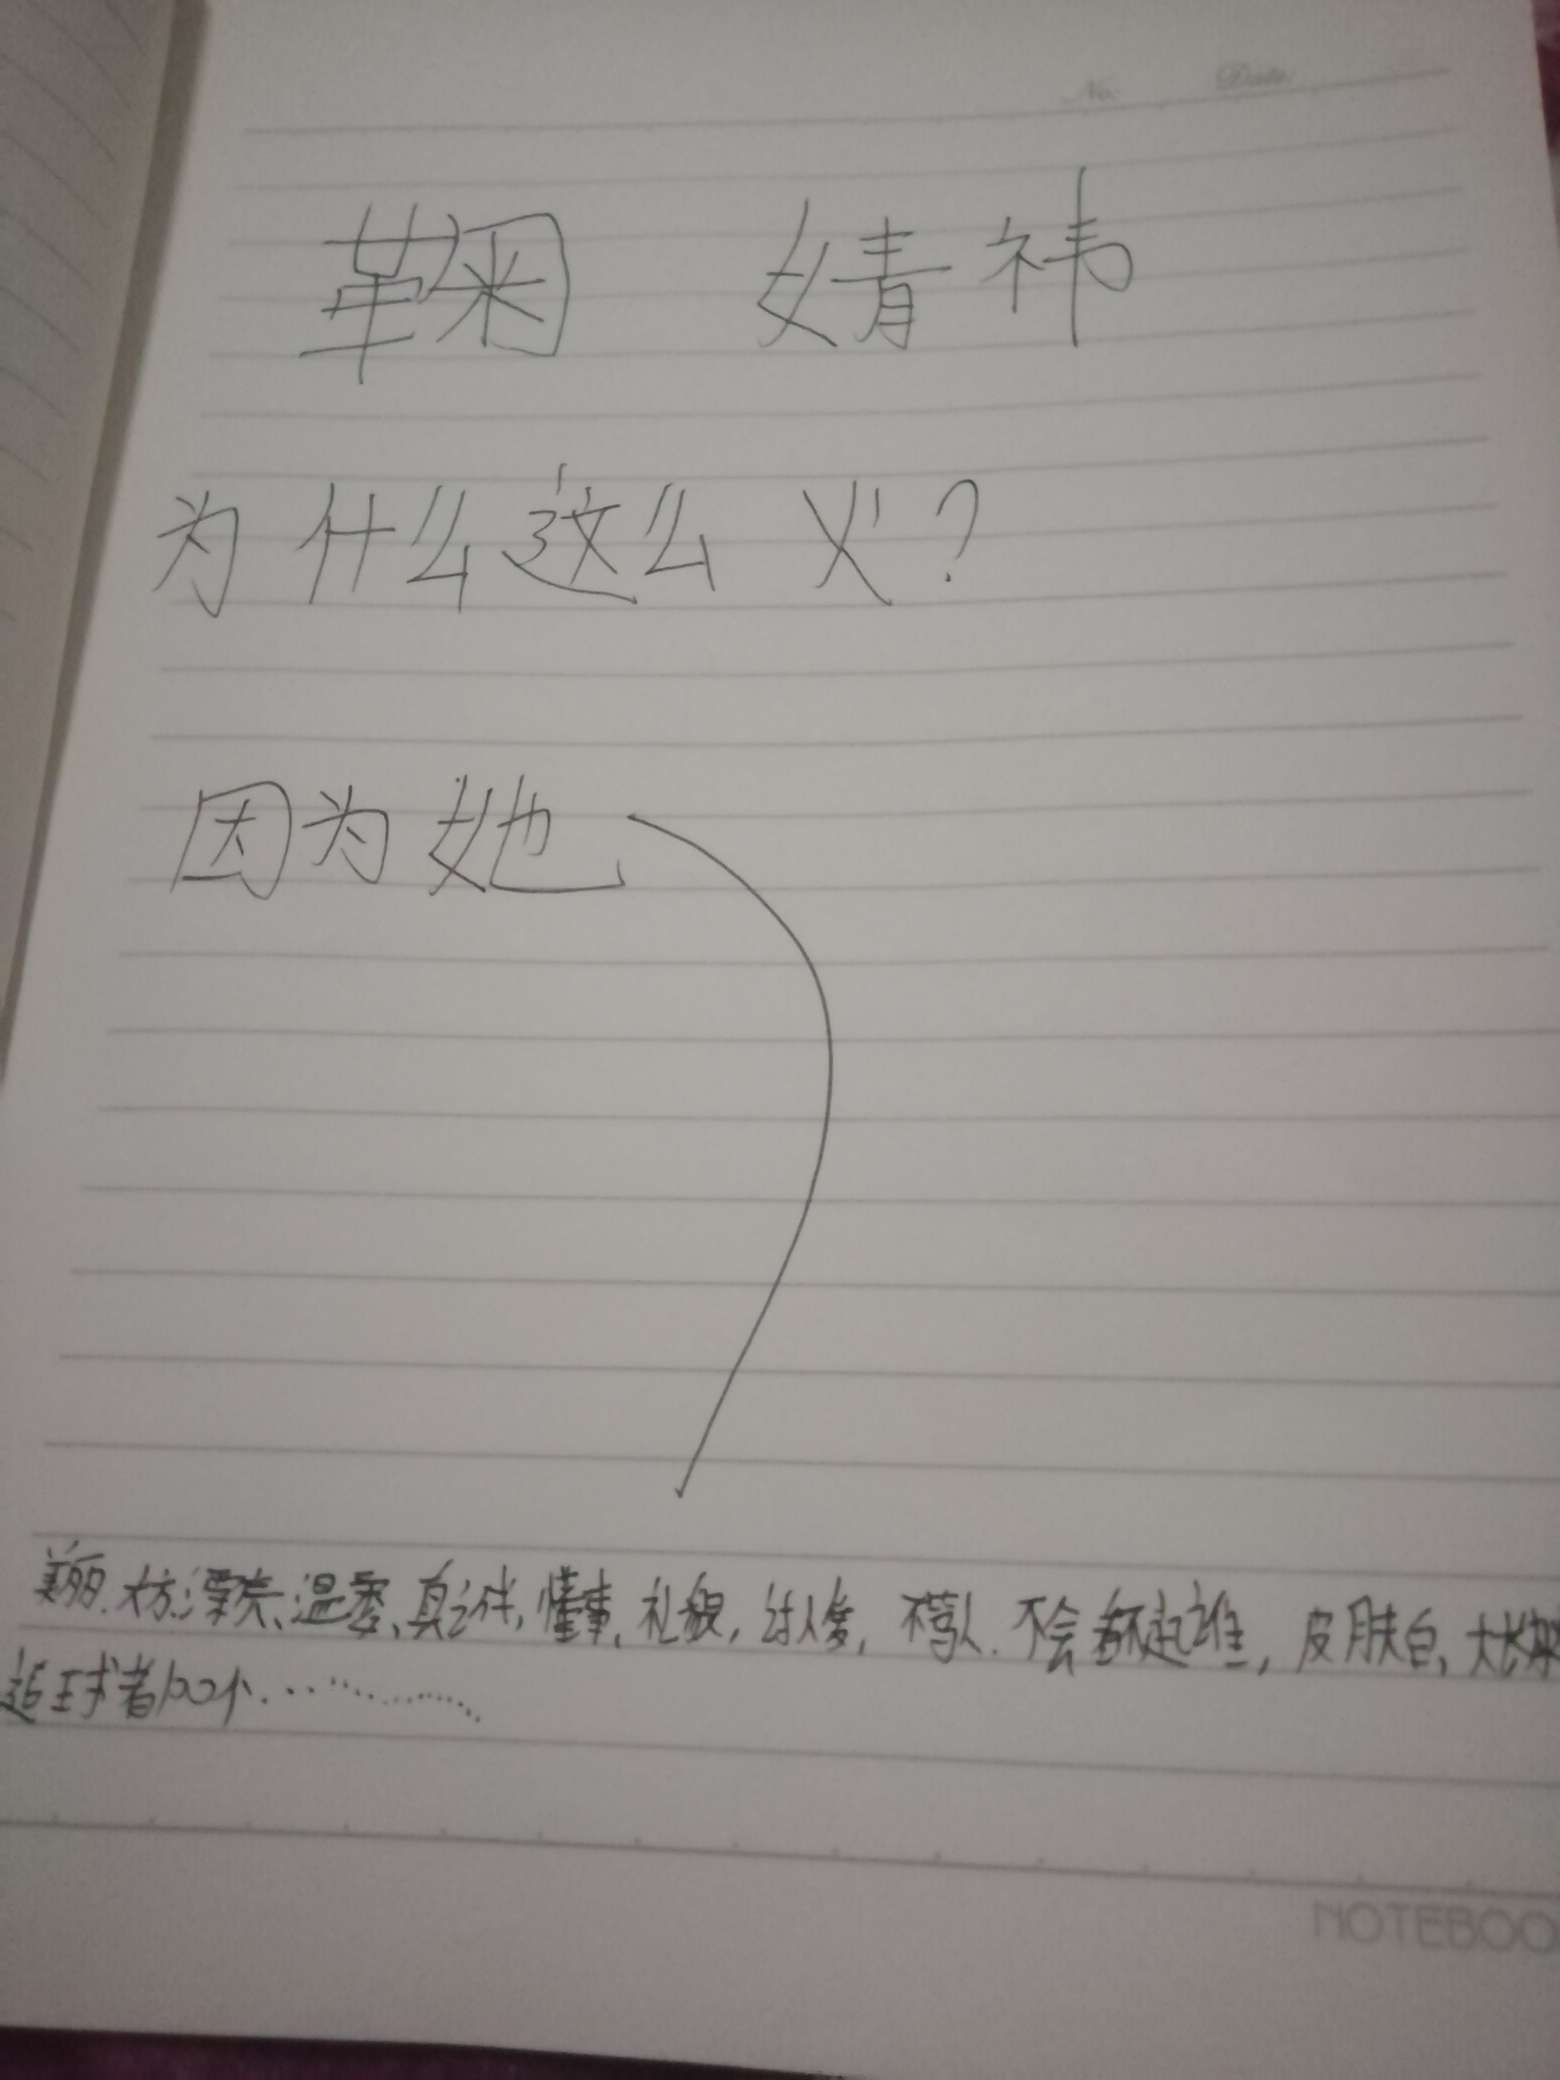 No. Date
鞠 婧祎
为什么这么火?
因为她
美丽.大方.漂亮、温柔、真诚,懂事,礼貌,讨人爱,不骂人.不会看不起谁,皮肤白,大长
追球者100个...............
NOTEBOO